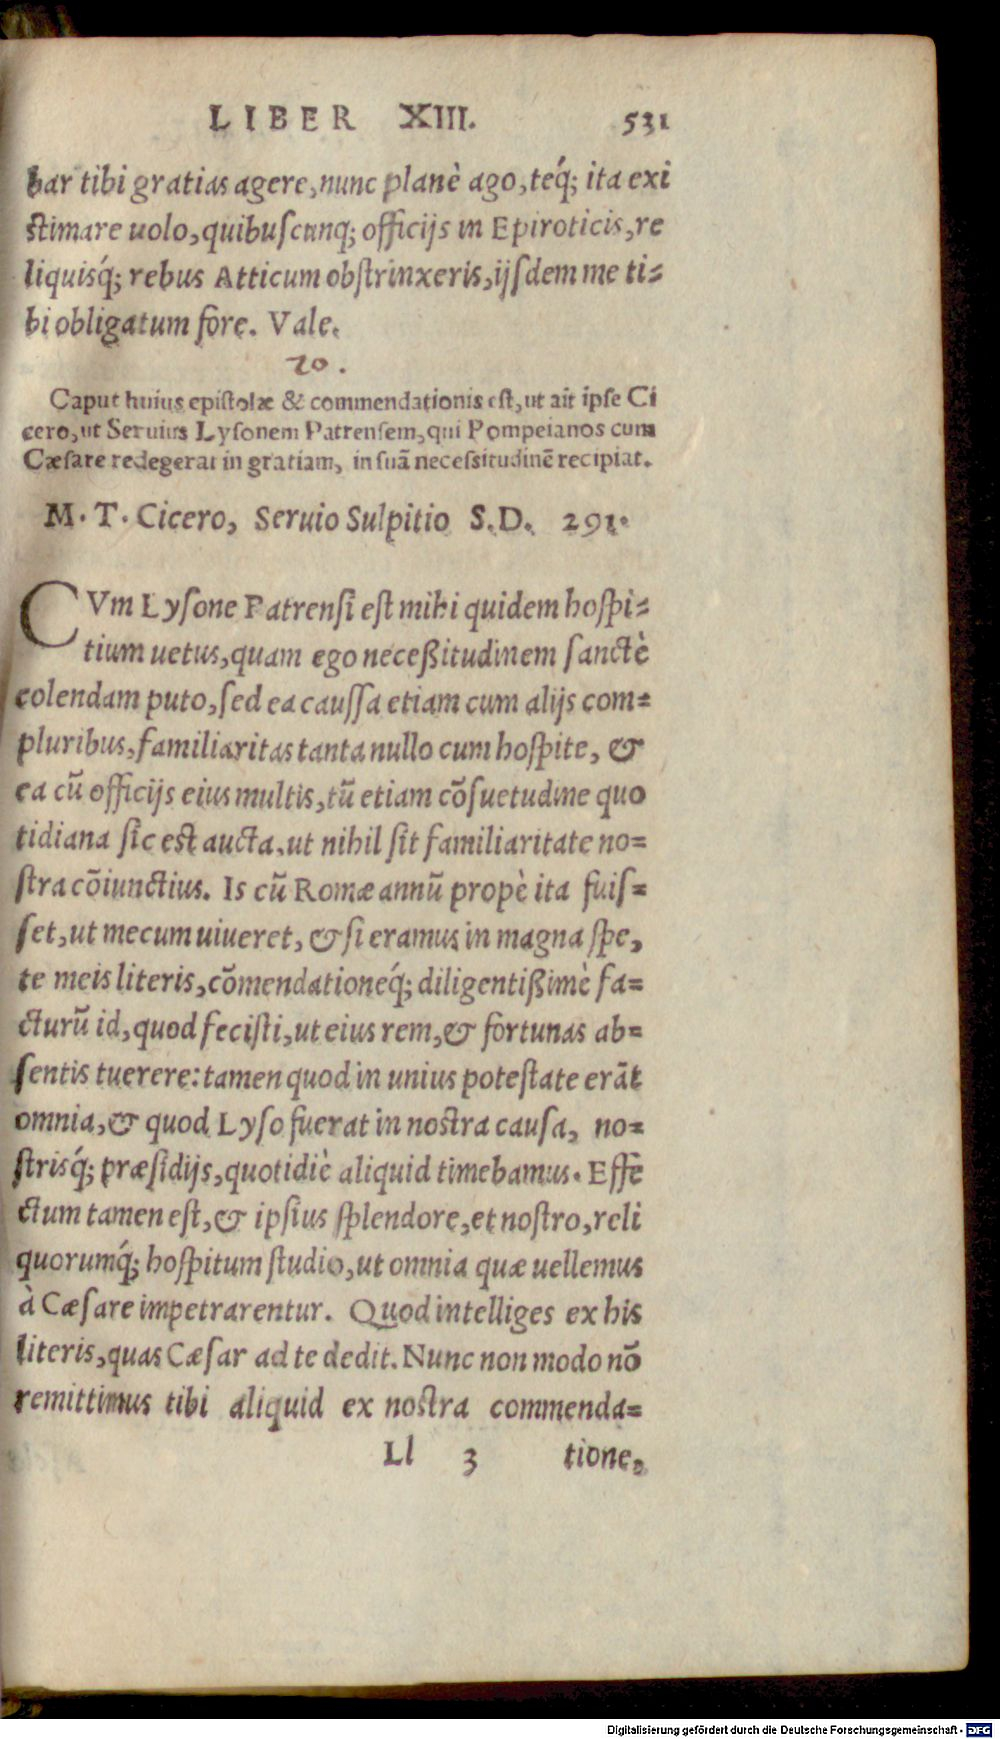 LIBER XIII. 531
bar tibi gratias agere, nunc planè ago, teq́; ita exi
stimare uolo, quibuscunq; officijs in Epiroticis, re
liquisq́; rebus Atticum obstrinxeris, ijsdem me ti=
bi obligatum fore. Vale.
20.
Caput huius epistolæ & commendationis est, ut ait ipse Ci
cero, ut Seruius Lysonem Patrensem, qui Pompeianos cum
Cæsare redegerat in gratiam, in suā necessitudinē recipiat.
M. T. Cicero, Seruio Sulpitio S. D. 291.
CVm Lysone Patrensi est mihi quidem hospi=
tium uetus, quam ego neceßitudinem sanctè
colendam puto, sed ea caussa etiam cum alijs com=
pluribus, familiaritas tanta nullo cum hospite, &
ea cū officijs eius multis, tū etiam cōsuetudine quo
tidiana sic est aucta, ut nihil sit familiaritate no=
stra cōiunctius. Is cū Romæ annū propè ita fuis=
set, ut mecum uiueret, & si eramus in magna spe,
te meis literis, cōmendationeq́; diligentißimè fa=
cturū id, quod fecisti, ut eius rem, & fortunas ab=
sentis tuerere: tamen quod in unius potestate erāt
omnia, & quod Lyso fuerat in nostra causa, no=
strisq́; præsidijs, quotidiè aliquid timebamus. Effe
ctum tamen est, & ipsius splendore, et nostro, reli
quorumq́; hospitum studio, ut omnia quæ uellemus
à Cæsare impetrarentur. Quod intelliges ex his
literis, quas Cæsar ad te dedit. Nunc non modo nō
remittimus tibi aliquid ex nostra commenda=
Ll 3 tione,
Digitalisierung gefördert durch die Deutsche Forschungsgemeinschaft - DFG